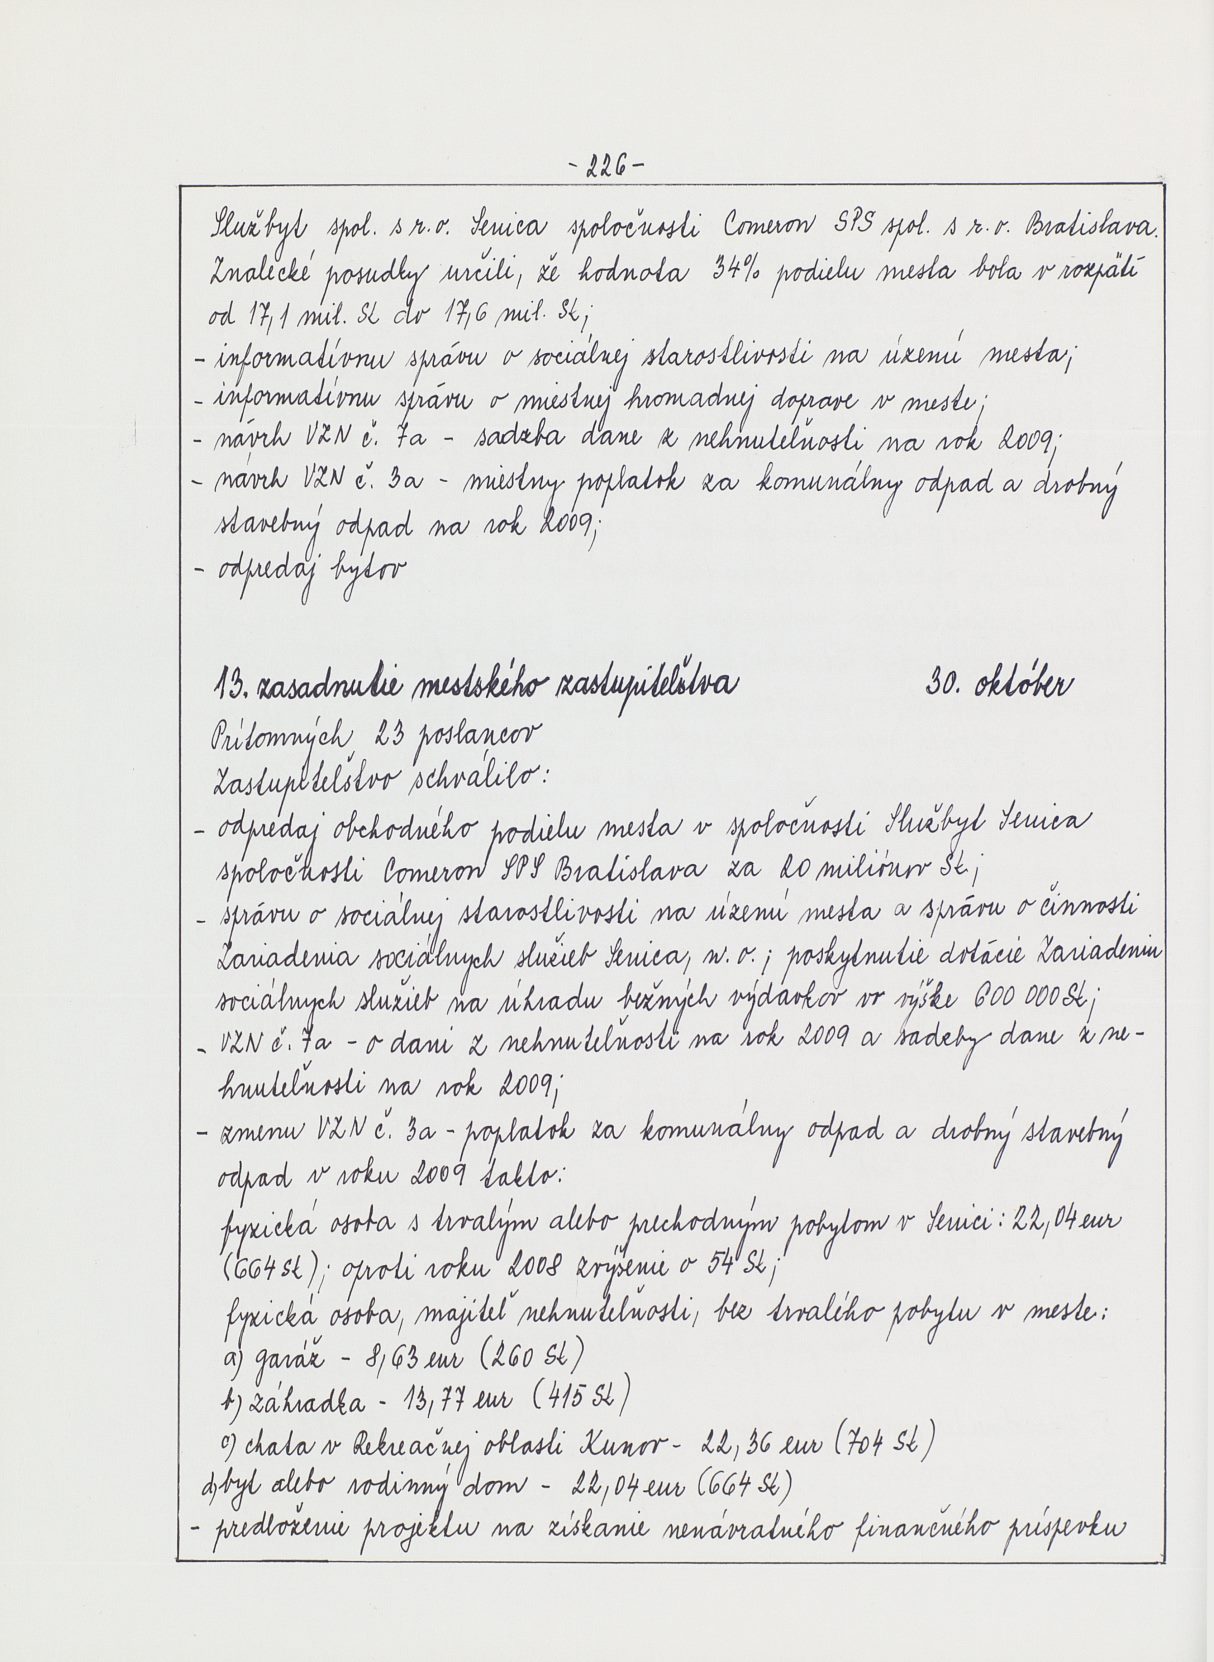 - 226 -
Službyt spol. s r. o. Senica spoločnosti Comeron SPS spol. s r. o. Bratislava.
Znalecké posudky určili, že hodnota 34% podielu mesta bola v rozpätí
od 17,1 mil. Sk do 17,6 mil. Sk;
- informatívnu správu o sociálnej starostlivosti na území mesta;
- informatívnu správu o miestnej hromadnej doprave v meste;
- návrh VZN č. 7a - sadzba dane z nehnuteľnosti na rok 2009;
- návrh VZN č. 3a - miestny poplatok za komunálny odpad a drobný
stavebný odpad na rok 2009;
- odpredaj bytov
13. zasadnutie mestského zastupiteľstva 30. október
Prítomných 23 poslancov
Zastupiteľstvo schválilo:
- odpredaj obchodného podielu mesta v spoločnosti Službyt Senica
spoločnosti Comeron SPS Bratislava za 20 miliónov Sk;
- správu o sociálnej starostlivosti na území mesta a správu o činnosti
Zariadenia sociálnych služieb Senica, n. o.; poskytnutie dotácie Zariadeniu
sociálnych služieb na úhradu bežných výdavkov vo výške 600 000 Sk;
- VZN č. 7a - o dani z nehnuteľnosti na rok 2009 a sadzby dane z ne-
hnuteľnosti na rok 2009;
- zmenu VZN č. 3a - poplatok za komunálny odpad a drobný stavebný
odpad v roku 2009 takto:
fyzická osoba s trvalým alebo prechodným pobytom v Senici: 22,04 eur
(664 Sk); oproti roku 2008 zvýšenie o 54 Sk;
fyzická osoba, majiteľ nehnuteľnosti, bez trvalého pobytu v meste:
a) garáž - 8,63 eur (260 Sk)
b) záhradka - 13,77 eur (415 Sk)
c) chata v Rekreačnej oblasti Kunov - 22,36 eur (704 Sk)
d) byt alebo rodinný dom - 22,04 eur (664 Sk)
- predloženie projektu na získanie nenávratného finančného príspevku